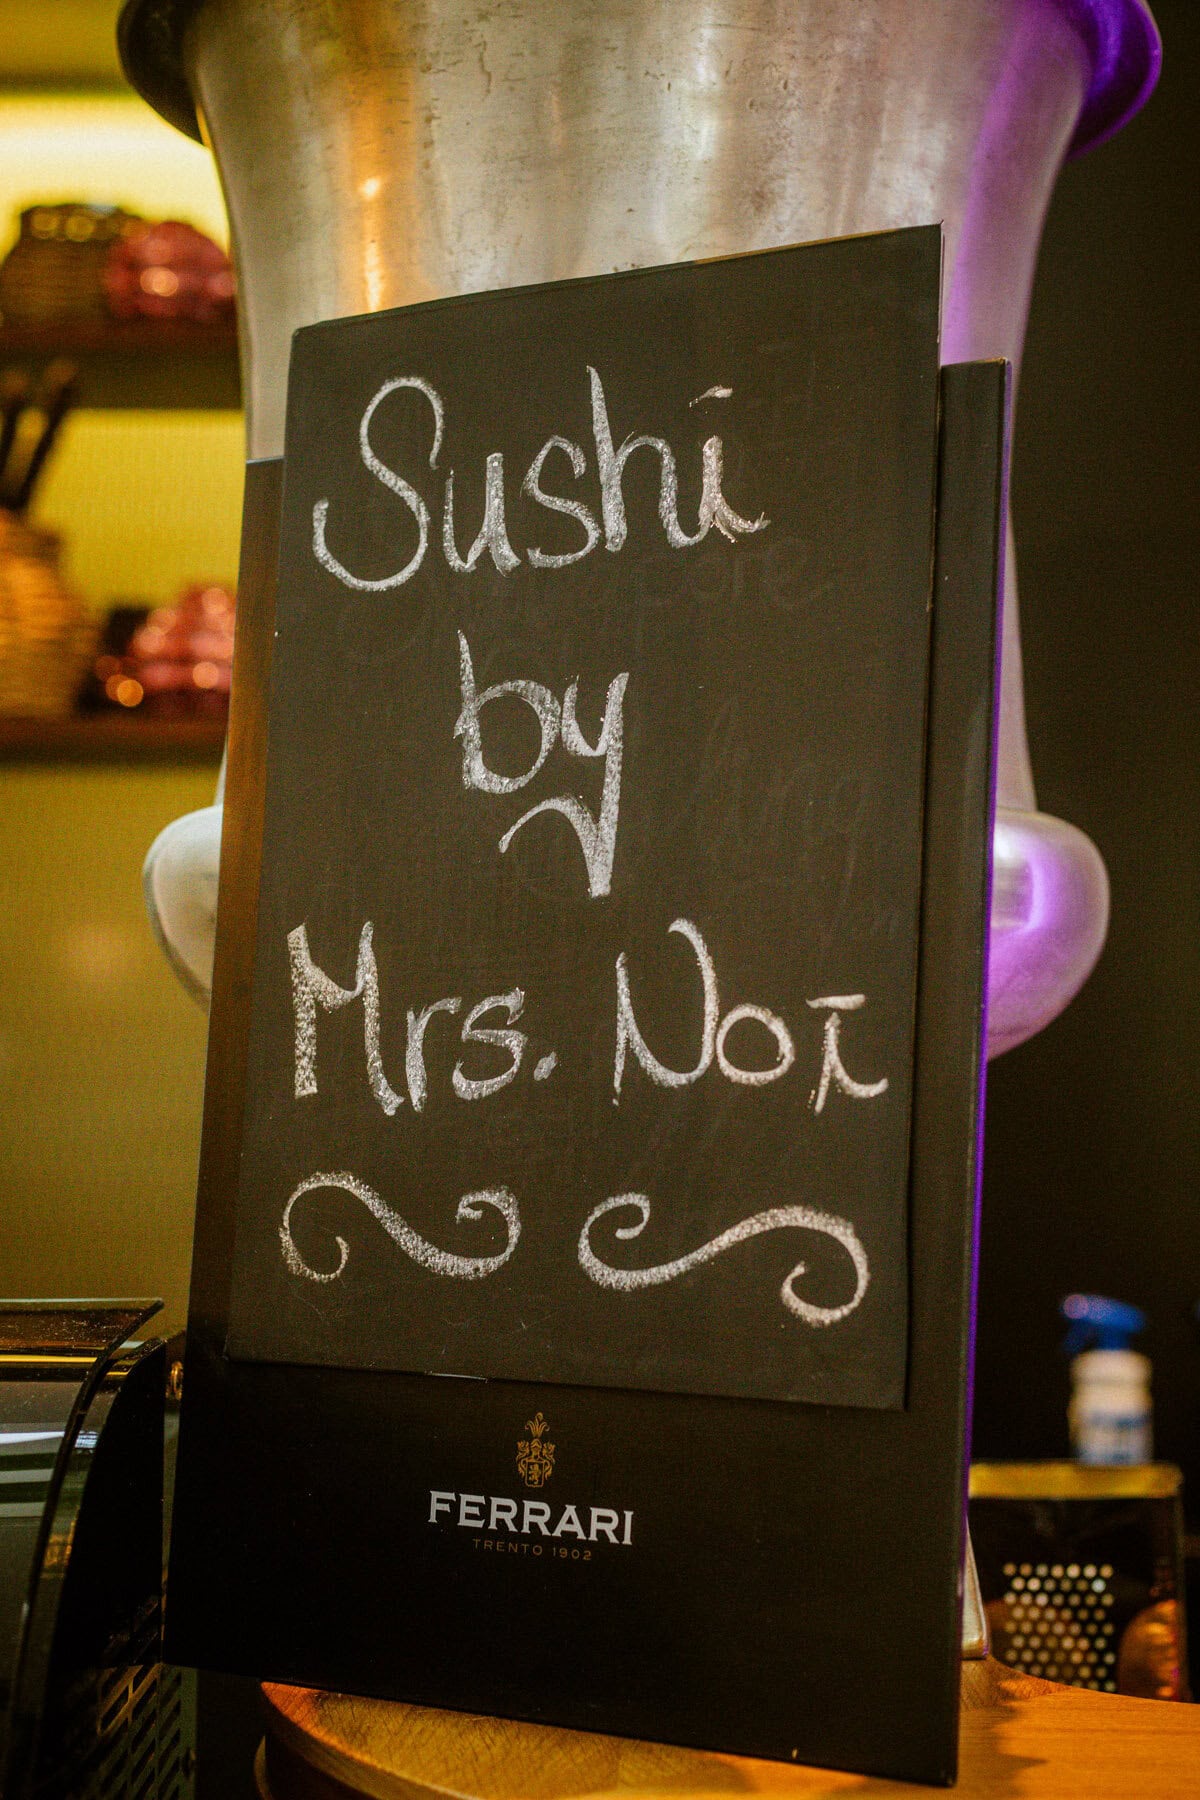 Sushi
by
Mrs. Noi
FERRARI
TRENTO 1902